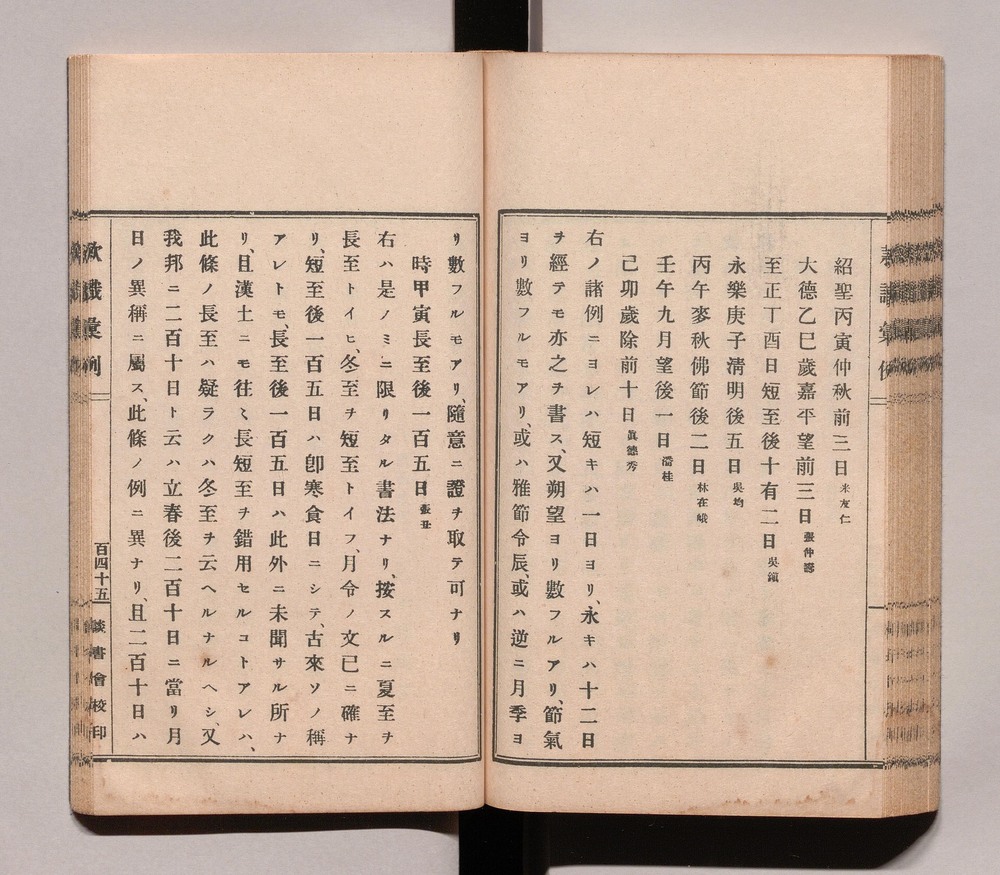 紹聖丙寅仲秋前三日 米友仁
大德乙巳歲嘉平望前三日 張仲壽
至正丁酉日短至後十有二日 吳鎭
永樂庚子淸明後五日 吳均
丙午麥秋佛節後二日 林在峨
壬午九月望後一日 潘桂
己卯歲除前十日 眞德秀
右ノ諸例ニヨレハ短キハ一日ヨリ、永キハ十二日
ヲ經テモ亦之ヲ書ス、又朔望ヨリ數フルアリ、節氣
ヨリ數フルモアリ、或ハ雅節令辰、或ハ逆ニ月季ヨ
リ數フルモアリ、隨意ニ證ヲ取テ可ナリ
時甲寅長至後一百五日 張丑
右ハ是ノミニ限リタル書法ナリ、按スルニ夏至ヲ
長至トイヒ、冬至ヲ短至トイフ、月令ノ文已ニ確ナ
リ、短至後一百五日ハ卽寒食日ニシテ、古來ソノ稱
アレトモ、長至後一百五日ハ此外ニ未聞サル所ナ
リ、且漢土ニモ往〻長短至ヲ錯用セルコトアレハ、
此條ノ長至ハ疑ラクハ冬至ヲ云ヘルナルヘシ、又
我邦ニ二百十日ト云ハ立春後二百十日ニ當リ月
日ノ異稱ニ屬ス、此條ノ例ニ異ナリ、且二百十日ハ
欵識彙例
百四十五
談書會校印